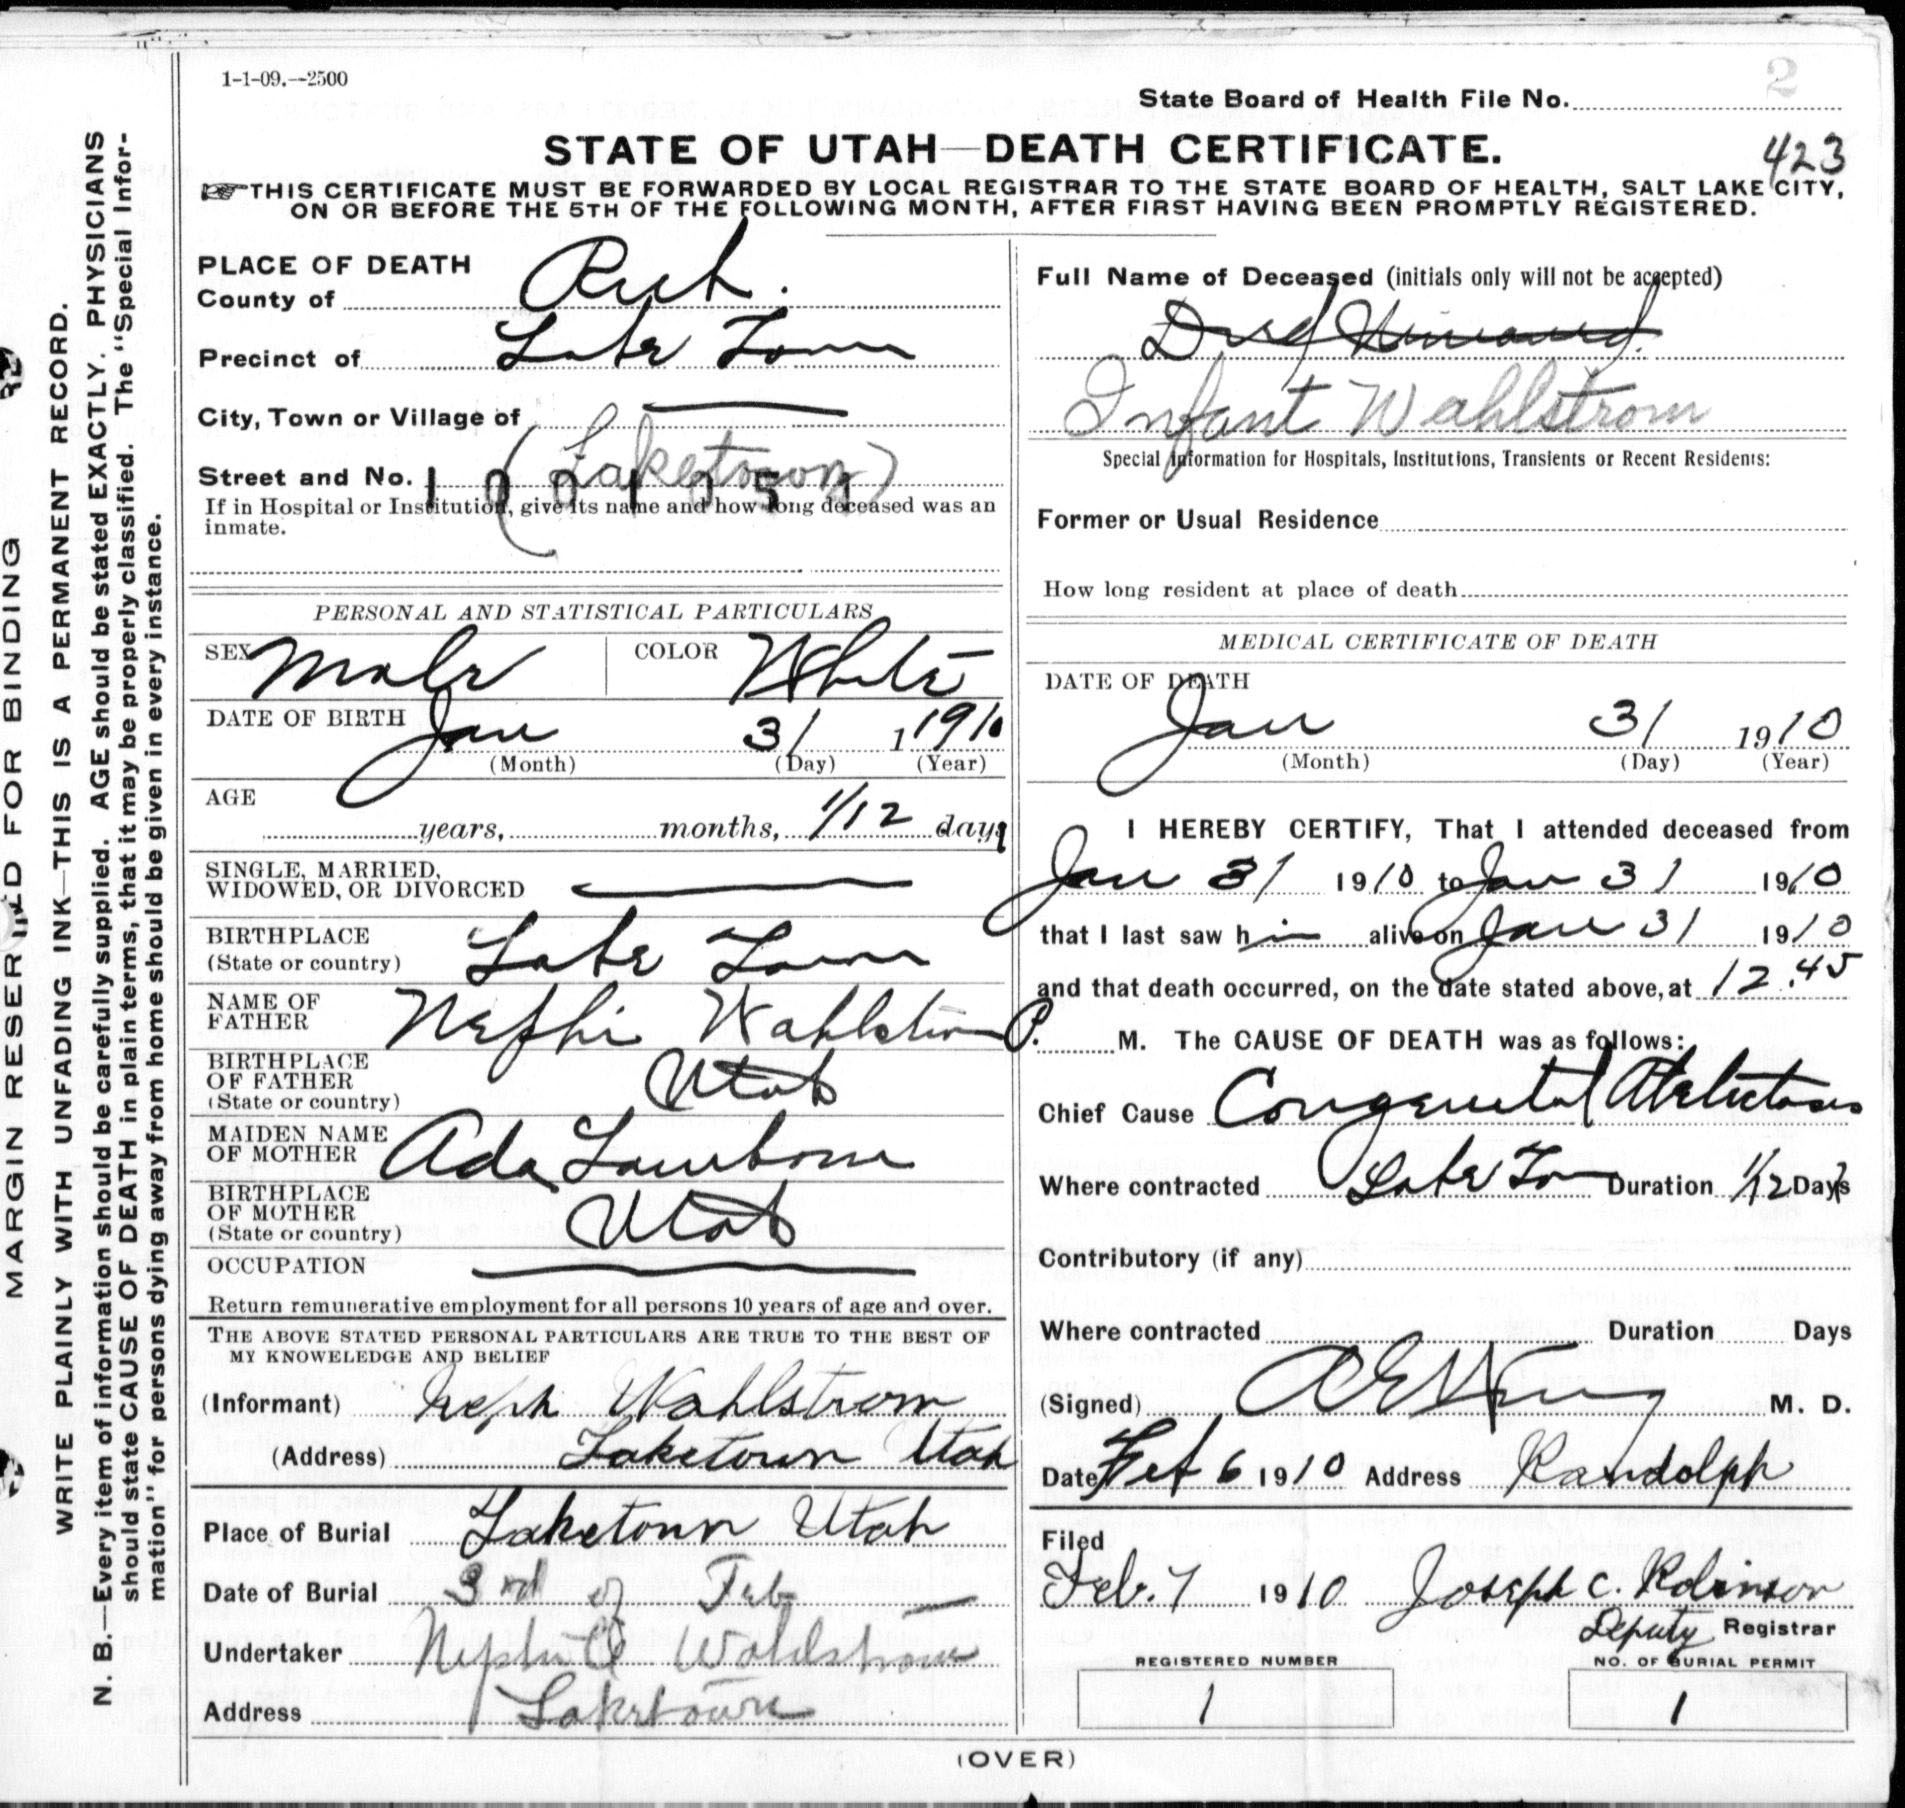 1-1-09.--2500
State Board of Health File No. 2
423
STATE OF UTAH—DEATH CERTIFICATE.
THIS CERTIFICATE MUST BE FORWARDED BY LOCAL REGISTRAR TO THE STATE BOARD OF HEALTH, SALT LAKE CITY,
ON OR BEFORE THE 5TH OF THE FOLLOWING MONTH, AFTER FIRST HAVING BEEN PROMPTLY REGISTERED.
MARGIN RESERVED FOR BINDING
WRITE PLAINLY WITH UNFADING INK—THIS IS A PERMANENT RECORD.
N. B.—Every item of information should be carefully supplied. AGE should be stated EXACTLY. PHYSICIANS
should state CAUSE OF DEATH in plain terms, that it may be properly classified. The "Special Infor-
mation" for persons dying away from home should be given in every instance.
PLACE OF DEATH
County of Rich.
Precinct of Lake Town
City, Town or Village of
Street and No. (Laketown)
1001054
If in Hospital or Institution, give its name and how long deceased was an
inmate.
PERSONAL AND STATISTICAL PARTICULARS
SEX Male COLOR White
DATE OF BIRTH Jan 31 1 1910
(Month) (Day) (Year)
AGE
years, months, 1/12 days
SINGLE, MARRIED,
WIDOWED, OR DIVORCED
BIRTHPLACE Lake Town
(State or country)
NAME OF
FATHER Nephi Wahlstrom
BIRTHPLACE
OF FATHER Utah
(State or country)
MAIDEN NAME
OF MOTHER Ada
BIRTHPLACE
OF MOTHER Utah
(State or country)
OCCUPATION
Return remunerative employment for all persons 10 years of age and over.
THE ABOVE STATED PERSONAL PARTICULARS ARE TRUE TO THE BEST OF
MY KNOWELEDGE AND BELIEF
(Informant) Neph Wahlstrom
(Address) Laketown Utah
Place of Burial Laketown Utah
Date of Burial 3rd of Feb
Undertaker Wahlstrom
Address Laketown
Full Name of Deceased (initials only will not be accepted)
Infant Wahlstrom
Special Information for Hospitals, Institutions, Transients or Recent Residents:
Former or Usual Residence
How long resident at place of death
MEDICAL CERTIFICATE OF DEATH
DATE OF DEATH
Jan 31 1910
(Month) (Day) (Year)
I HEREBY CERTIFY, That I attended deceased from
Jan 31 1910 to Jan 31 1910
that I last saw him alive on Jan 31 1910
and that death occurred, on the date stated above, at 12.45
P. M. The CAUSE OF DEATH was as follows:
Chief Cause Congenital Atelectasis
Where contracted Lake Town Duration 1/12 Days
Contributory (if any)
Where contracted Duration Days
(Signed) M. D.
Date Feb 6 1910 Address Randolph
Filed
Feb. 7 1910 Joseph C. Robinson
Deputy Registrar
REGISTERED NUMBER
1
NO. OF BURIAL PERMIT
1
(OVER)